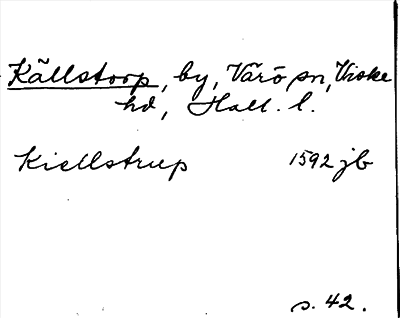 Källstorp, by, Värö sn, Viske
hd, Hall. l.
Kiellstrup 1592 jb
s. 42.